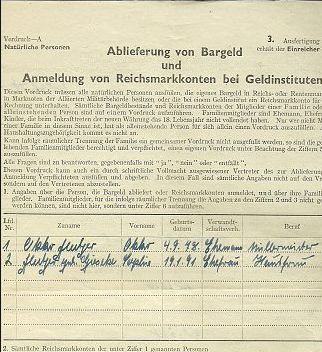 Vordruck—A
Natürliche Personen
3. Ausfertigung
erhält der Einreicher
Ablieferung von Bargeld
und
Anmeldung von Reichsmarkkonten bei Geldinstituten
Diesen Vordruck müssen alle natürlichen Personen ausfüllen, die eigenes Bargeld in Reichs- oder Rentenmar
in Marknoten der Alliierten Militärbehörde besitzen oder die bei einem Geldinstitut ein Reichsmarkkonto für
Rechnung unterhalten. Sämtliche Bargeldbestände und Reichsmarkkonten der Mitglieder einer Familie oder
alleinstehenden Person sind auf einem Vordruck aufzuführen. Familienmitglieder sind Ehemann, Ehefr
Kinder, die beim Inkrafttreten der neuen Währung das 18. Lebensjahr nicht vollendet haben. Nur wer nicht M
einer Familie in diesem Sinne ist, hat als alleinstehende Person für sich allein einen Vordruck auszufüllen. A
Haushaltungszugehörigkeit kommt es nicht an.
Kann infolge räumlicher Trennung der Familie ein gemeinsamer Vordruck nicht ausgefüllt werden, so sind die ge
lebenden Familienmitglieder berechtigt und verpflichtet, einen eigenen Vordruck unter Beachtung der Ziffern
auszufüllen.
Alle Fragen sind zu beantworten, gegebenenfalls mit "ja", "nein" oder "entfällt".
Diesen Vordruck kann auch ein durch schriftliche Vollmacht ausgewiesener Vertreter des zur Ablieferung
Anmeldung Verpflichteten ausfüllen und abgeben. In diesem Fall sind sämtliche Angaben nicht auf den Ve
sondern auf den Vertretenen abzustellen.
1. Angaben über die Person, die Bargeld abliefert oder Reichsmarkkonten anmeldet, und über ihre Familien
glieder. Familienmitglieder, für die infolge räumlicher Trennung die Angaben zu den Ziffern 2 und 3 nicht ge
werden können, sind nicht hier, sondern unter Ziffer 6 aufzuführen.
Lfd. Nr. Zuname Vorname Geburts-datum Verwandt-schaftsverh. Beruf
1 Oskar Oskar Ehemann Müllermeister
2 geb. 19.1.91 Ehefrau Hausfrau
2. Sämtliche Reichsmarkkonten der unter Ziffer 1 genannten Personen